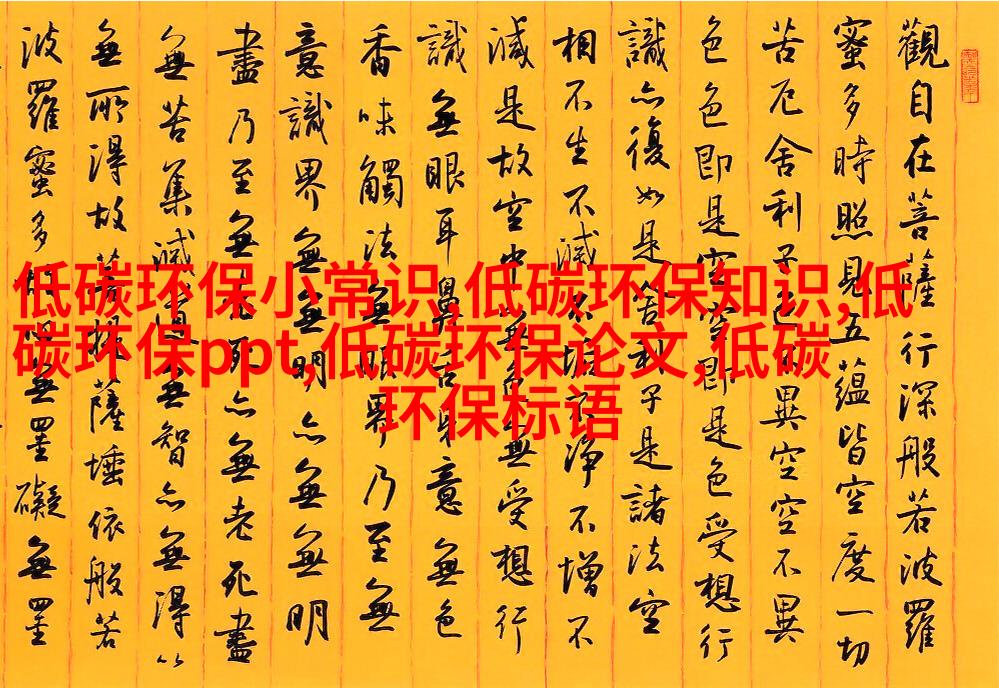 低碳环保小常识,低碳环保知识,低
碳环保ppt,低碳环保论文,低碳
环保标语
觀自在菩薩行深般若波羅
蜜多時照見五蘊皆空度一切
苦厄舍利子色不異空空不異
色色即是空空即是色受想行
識亦復如是舍利子是諸法空
相不生不滅不垢不淨不增不
減是故空中無色無受想行
識無眼耳鼻舌身意無色
香味觸法無眼界乃至無
意識界無無明亦無無明
盡乃至無老死亦無老死盡
無苦集滅道無智亦無得以
無所得故菩提薩埵依般若
波羅蜜多無罣礙無罣